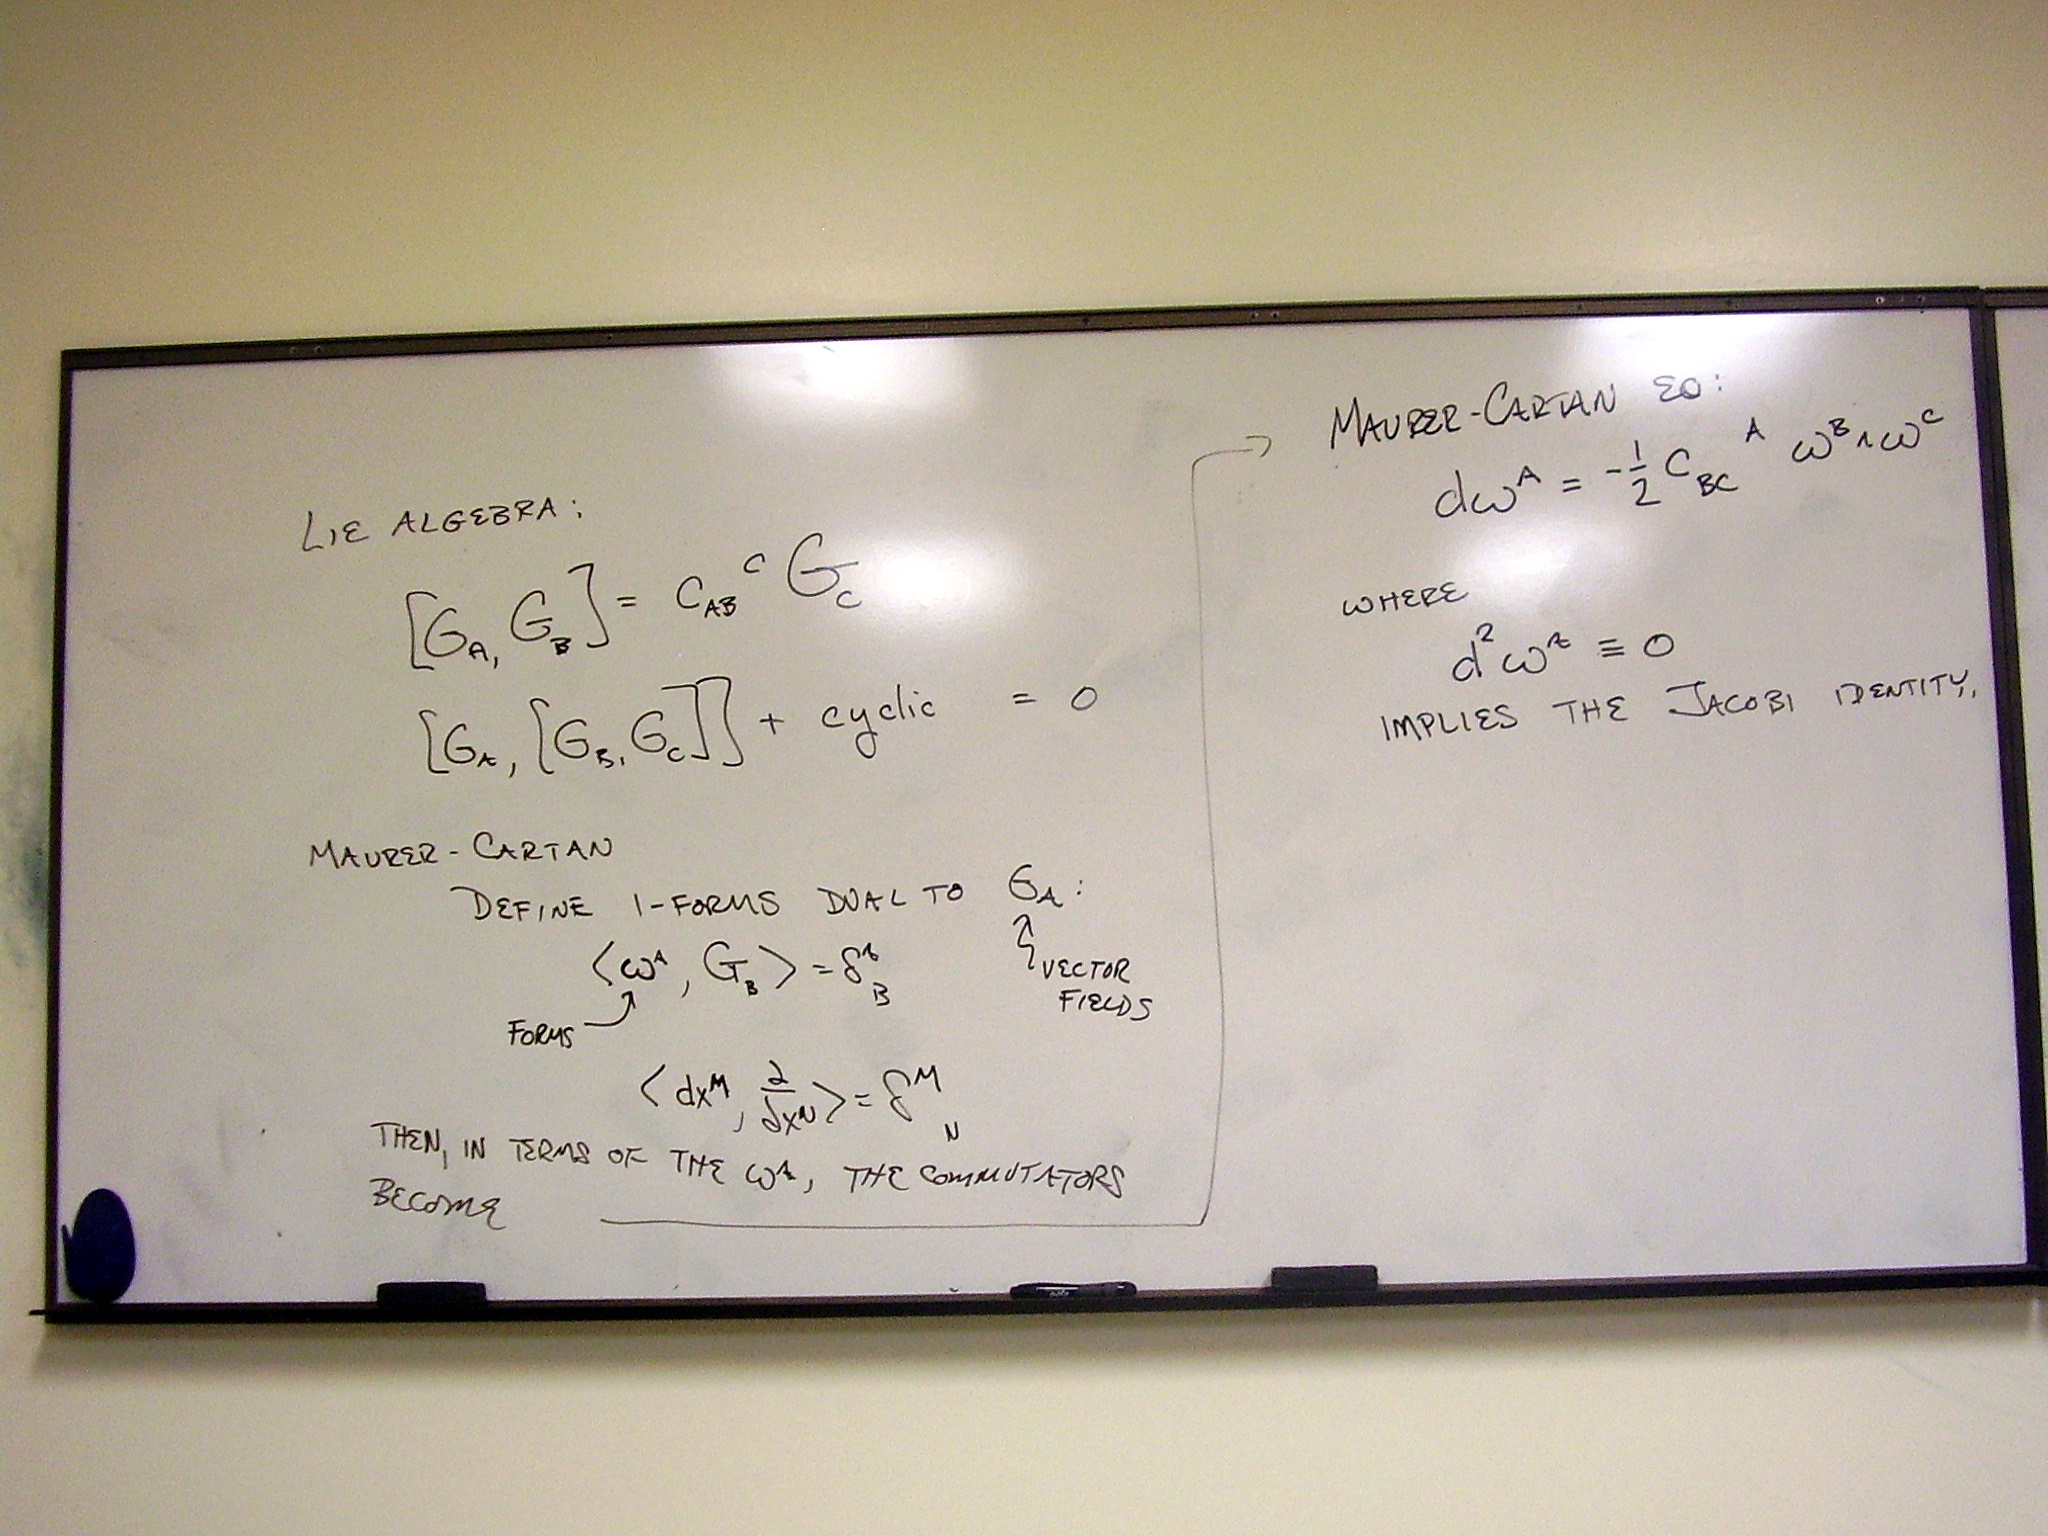 LIE ALGEBRA:
[G_A, G_B] = c_AB^C G_C
[G_A, [G_B, G_C]] + cyclic = 0
MAURER-CARTAN
DEFINE 1-FORMS DUAL TO G_A:
⟨ω^A, G_B⟩ = δ^A_B
VECTOR
FIELDS
FORMS
⟨dx^M, ∂/∂x^N⟩ = δ^M_N
THEN, IN TERMS OF THE ω^A, THE COMMUTATORS
BECOME
MAURER-CARTAN EQ:
dω^A = -1/2 C_BC^A ω^B ∧ ω^C
WHERE
d^2 ω^A ≡ 0
IMPLIES THE JACOBI IDENTITY.